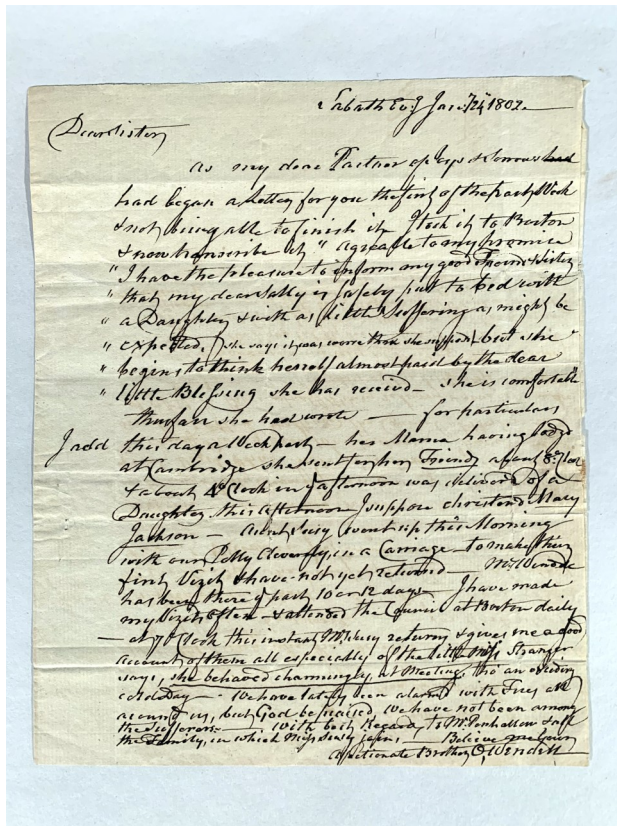 Sabath Evg Jany 24 1802.
Dear Sister
As my dear Partner of Joys & Sorrows had
had began a Letter for you the first of the past Week
& not being able to finish it, I took it to Boston
& now transcribe it, "agreable to my promise
"I have the pleasure to inform my good Friend & Sister
"that my dear Sally is safely put to bed with
"a Daughter & with as little Suffering as might be
"expected, (she says it was worse than she supposd) but she
"begins to think herself almost paid by the dear
"little Blessing she has receivd - she is comfortable
thus far she had wrote — for particulars
I add this day a Week past - her Mama having lodgd
at Cambridge she sent for her Friends about 8 oClock
& about 4 oClock in ye afternoon was deliverd of a
Daughter, this afternoon I suppose christend Mary
Jackson — Aunt Susy went up this Morning
with our Polly Cleverly in a Carriage to make their
first Vizit & have not yet returnd — Mrs Wendell
has been there ye past 10 or 12 days - I have made
my Vizits often - & attended the Council at Boston daily
— at 7 oClock this instant Ms Susy returns & gives me a good
account of them all especially of the little Miss Stranger
says, she behaved charmingly at Meeting, tho' an exceeding
cold Day - We have lately been alarmd with Fires all
around us, but God be praised we have not been among
the Sufferers — With best Regards to Mr Penhallow & all
the Family, in which Miss Susy joins, — Believe me your
affectionate Brother O. Wendell